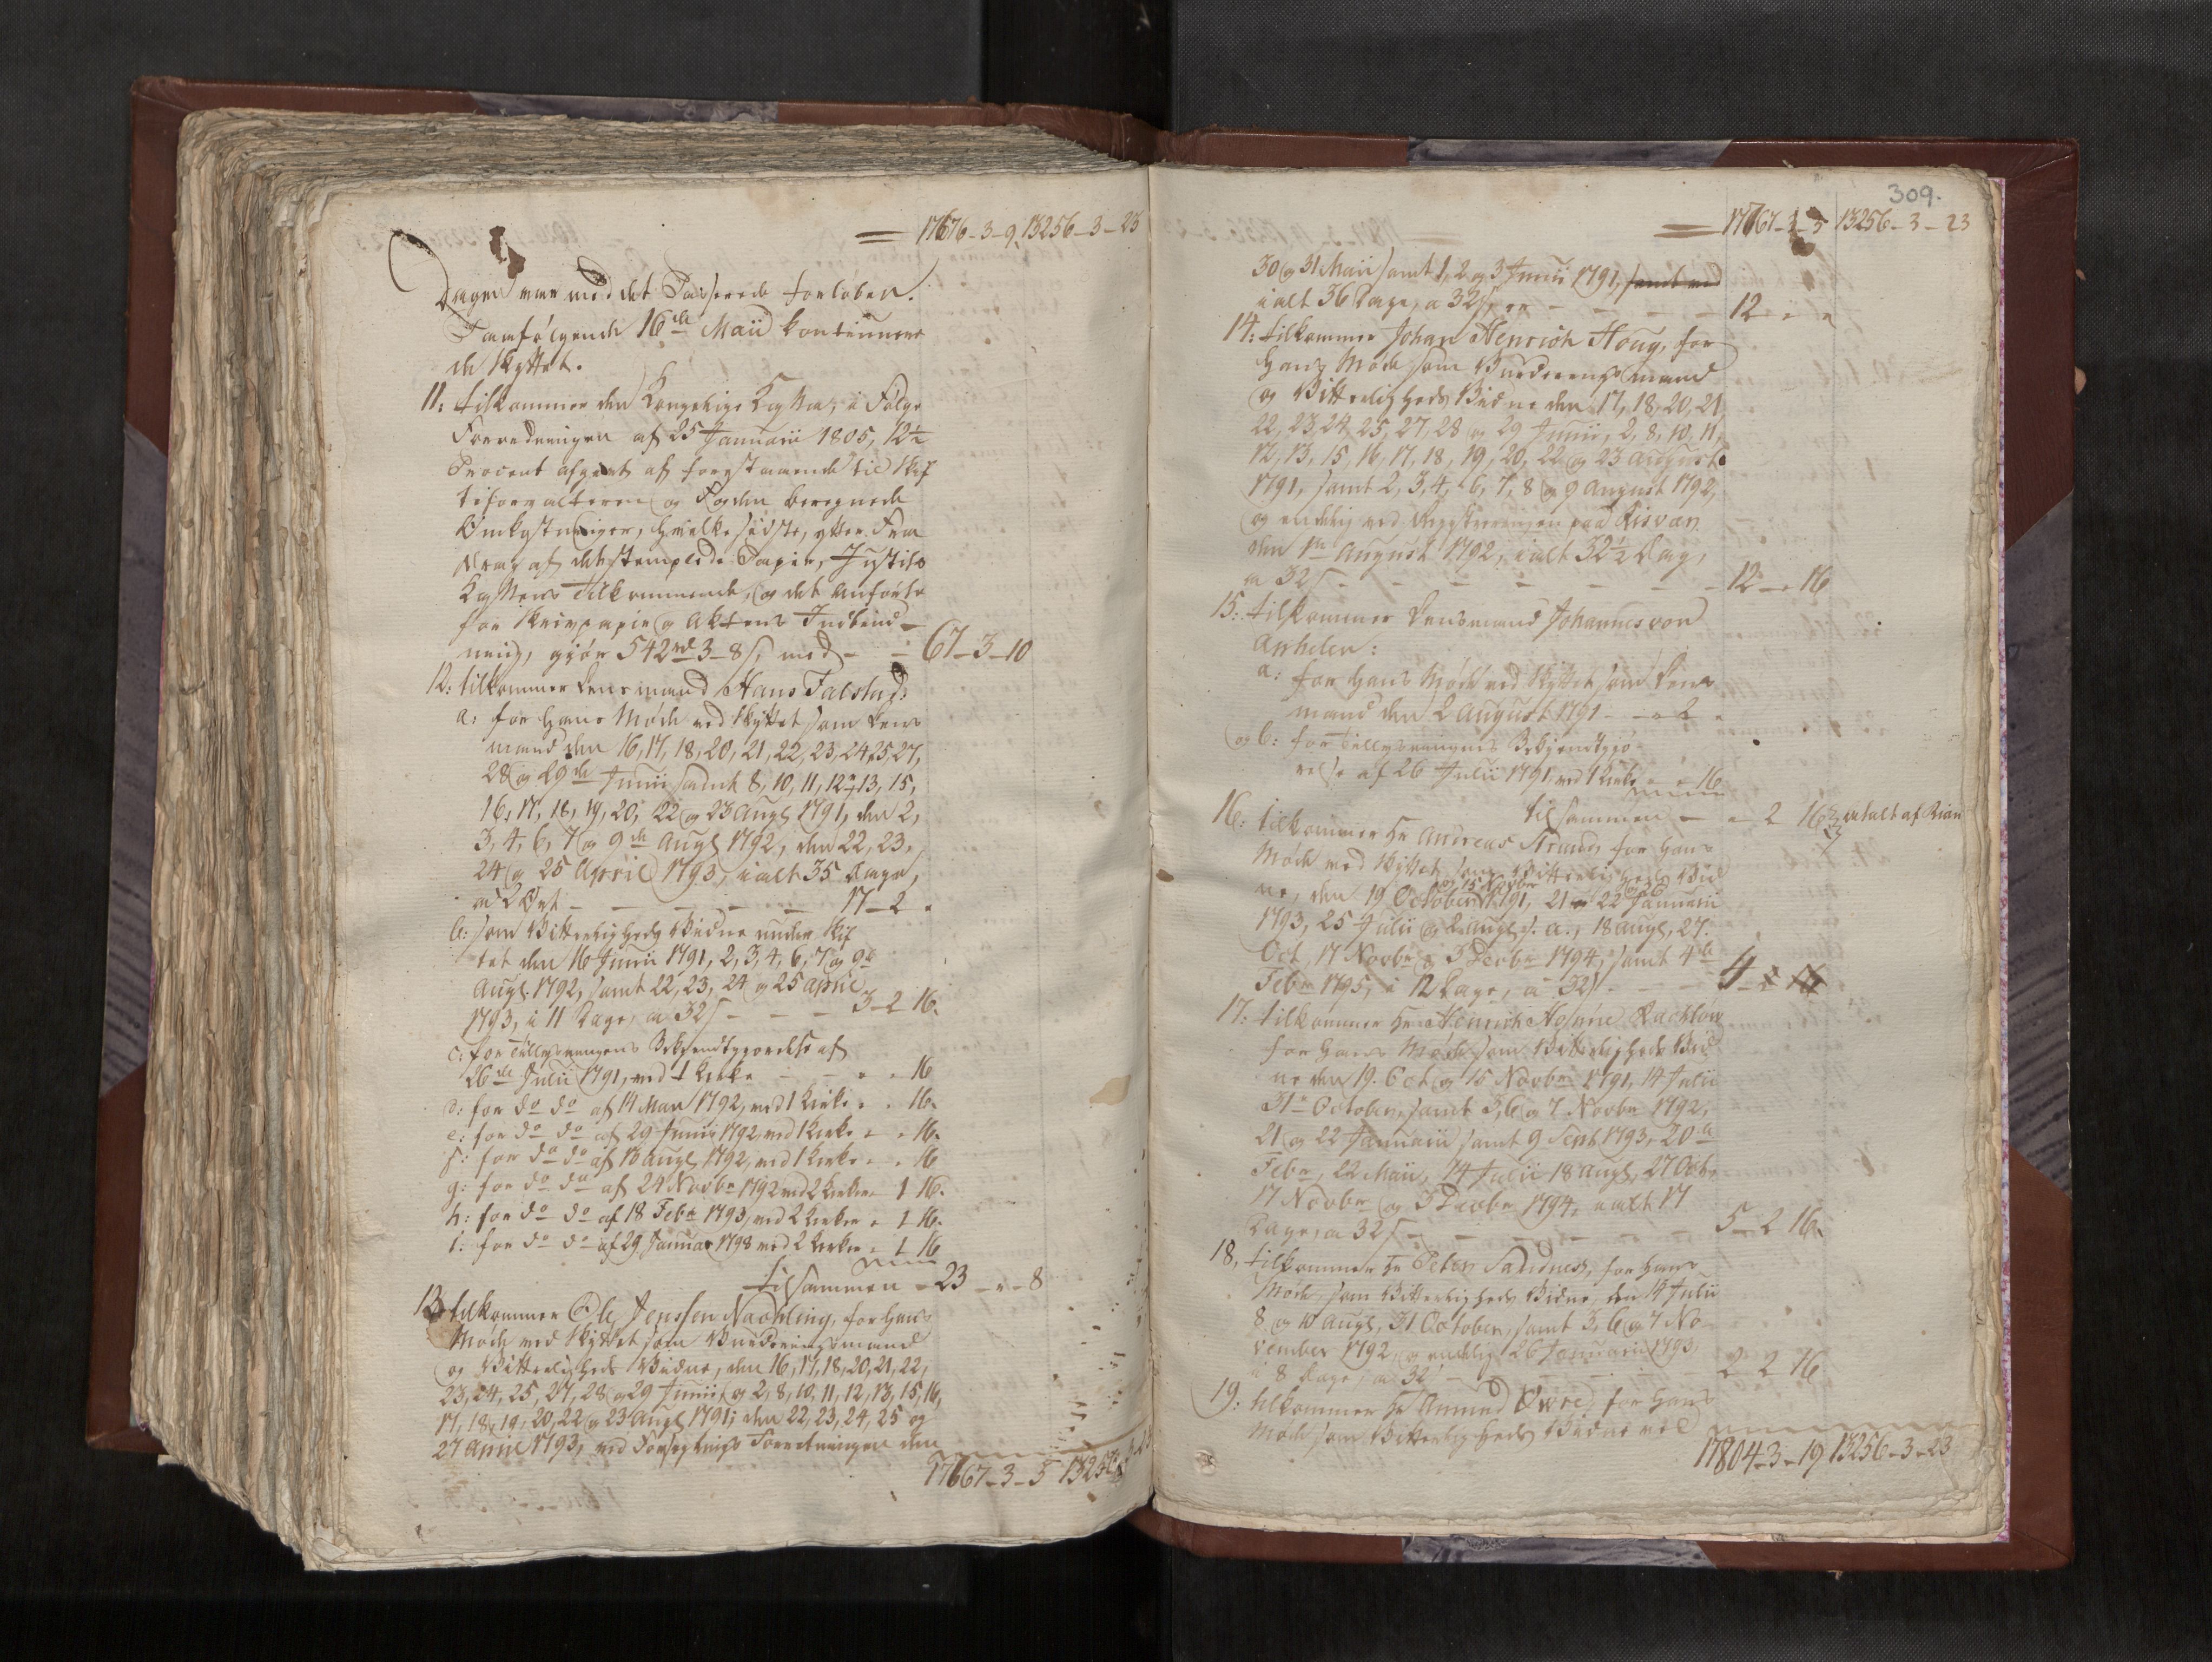 17676-3-9. 13256-3-23
Dagen var med det Passerede forløben.
Paafølgende 16de Maii kontinuere
de Skiftet.
11: tilkommer den Kongelige Kasse, i Følge
Forordningen af 25 Januarii 1805, 12½
Procent afgivt af forestaaende til Skif
teforvalteren og Fogden beregnede
Omkostninger, hvilke sidste, efter Fra
drag af det stemplede Papir, Justits
Kassens Tilkommende, og det anførte
for Skrivpapir og Aktens Indbind-
ning, giør 542rd 3-8s, med - - 67-3-10
12: tilkommer Lensmand Hans Falstad:
a: for hans Møde ved Skiftet som Lens
mand den 16, 17, 18, 20, 21, 22, 23, 24, 25, 27,
28 og 29de Junii samt 8, 10, 11, 12, 13, 15,
16, 17, 18, 19, 20, 22 og 23 Augs 1791, den 2,
3, 4, 6, 7 og 9de Augs 1792, den 22, 23,
24 og 25 April 1793, ialt 35 Dage,
a 2 Ort - - - - - 17-2 "
b: som Vitterligheds Vidne under Skif
tet den 16 Junii 1791, 2, 3, 4, 6, 7 og 9de
Augs. 1792, samt 22, 23, 24 og 25 april
1793, i 11 Dage, a 32s - - - 3-2 16.
c: for Tillysningens Bekiendtgiørelse af
26de Julii 1791, ved 1 Kirke - - " " 16
d: for do do af 14 Mar 1792, ved 1 Kirke " " 16.
e: for do do af 29 Junii 1792, ved 1 Kirke " " 16.
f: for do do af 13 Augs 1792, ved 1 Kirke " " 16
g: for do do af 24 Novbr 1792 ved 2 Kirker " 1 16.
h: for do do af 18 Febr 1793, ved 2 Kirker " 1 16.
i: for do do af 29 Januar 1798 ved 2 Kirker " 1 16
tilsammen - 23 - " - 8
13 tilkommer Ole Jenssen Nachling, for hans
Møde ved Skiftet som Vurderingsmand
og Vitterligheds Vidne, den 16, 17, 18, 20, 21, 22,
23, 24, 25, 27, 28 og 29 Junii, og 2, 8, 10, 11, 12, 13, 15, 16,
17, 18, 19, 20, 22 og 23 Augs 1791; den 22, 23, 24, 25 og
27 April 1793, ved Forretningen den
17767-3-5 13256-3-23
309.
17767-3-5 13256-3-23
30 og 31 Maii samt 1, 2 og 3 Junii 1791, samt ved
ialt 36 Dage, a 32s, er - - - - 12 " "
14: tilkommer Johan Henrich Houg, for
hans Møde som Vurderingsmand
og Vitterligheds Vidne den 17, 18, 20, 21
22, 23, 24, 25, 27, 28 og 29 Junii, 2, 8, 10, 11,
12, 13, 15, 16, 17, 18, 19, 20, 22 og 23 August
1791, samt 2, 3, 4, 6, 7, 8 og 9 August 1792,
og endelig ved Registreringen paa Risvan
den 1te August 1792, ialt 32½ Dag,
a 32s - - - - - 12 - " 16
15: tilkommer Lensmand Johannes von
Aphelen:
a: for hans Møde ved Skiftet som Lens
mand den 2 August 1791 - - " 2 "
og b: for Tillysningens Bekiendtgiø
relse af 26 Julii 1791, ved 1 Kirke " " 16
tilsammen - " 2 16 betalt af Rian
16: tilkommer Hr Andreas Strund, for hans
Møde ved Skiftet som Vitterligheds Vid
og 15 Novbr og 26
ne, den 19 October 1791, 21 22 Januarii
1793, 25 Julii og 2 Augs s. a., 18 Augs, 27.
Oct, 17 Novbr og 3 Decbr 1794, samt 4de
Febr 1795, i 12 Dage, a 32s - - - 4
17: tilkommer Hr Henrich Rachlow
for hans Møde som Vitterligheds Vid
ne den 19. Oct og 15 Novbr 1791, 14 Julii
31te October, samt 3, 6 og 7 Novbr 1792,
21 og 22 Januarii samt 9 Sept 1793, 20de
Febr, 22 Maii, 24 Julii 18 Augs, 27 Oct,
17 Novbr og 3 Decbr 1794, ialt 17
Dage, a 32s - - - - - 5-2 16.
18, tilkommer Hr Peter Sadidness, for hans
Møde som Vitterligheds Vidne, den 14 Julii
8 og 10 Augs, 31 October, samt 3, 6 og 7 No
vember 1792, og endelig 26 Januarii 1793,
i 8 Dage, a 32s - - - - 2 2 16
19: tilkommer Hr Amund Øwre, for hans
Møde som Vitterligheds Vidne ved
17804-3-19 13256-3-23